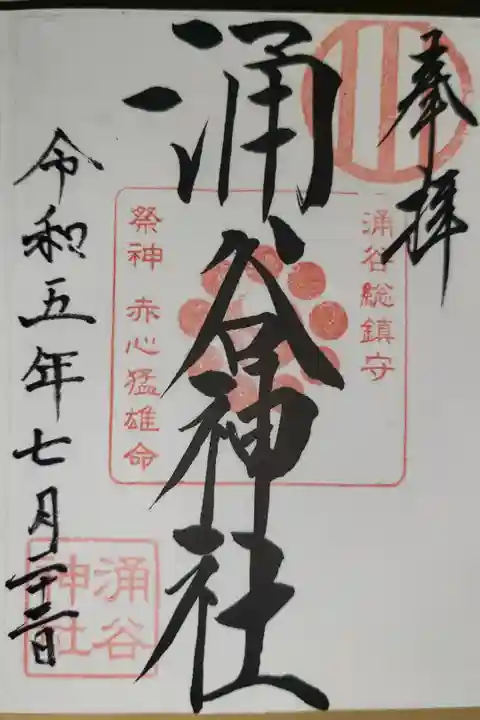 奉拝
涌谷総鎮守
涌谷神社
祭神 赤心猛雄命
令和五年七月二十二日
涌谷
神社